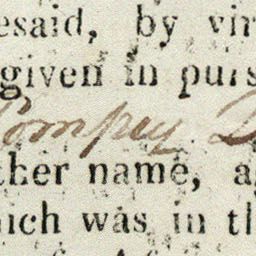 esaid, by vir
given in purs
Pompey D
ther name, a
hich was in th